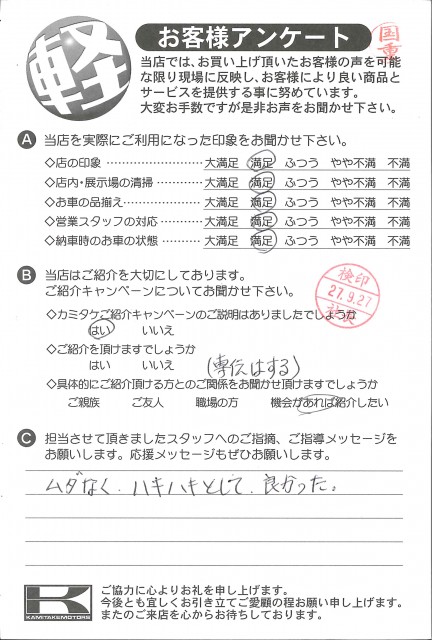 軽
お客様アンケート
国重
当店では、お買い上げ頂いたお客様の声を可能
な限り現場に反映し、お客様により良い商品と
サービスを提供する事に努めています。
大変お手数ですが是非お声をお聞かせ下さい。
A 当店を実際にご利用になった印象をお聞かせ下さい。
◇店の印象 ……………………… 大満足 満足 ふつう やや不満 不満
◇店内・展示場の清掃 ………… 大満足 満足 ふつう やや不満 不満
◇お車の品揃え ………………… 大満足 満足 ふつう やや不満 不満
◇営業スタッフの対応 ………… 大満足 満足 ふつう やや不満 不満
◇納車時のお車の状態 ………… 大満足 満足 ふつう やや不満 不満
B 当店はご紹介を大切にしております。
ご紹介キャンペーンについてお聞かせ下さい。
検印
27.9.27
◇カミタケご紹介キャンペーンのご説明はありましたでしょうか
はい いいえ
◇ご紹介を頂けますでしょうか
はい いいえ (専伝はする)
◇具体的にご紹介頂ける方とのご関係をお聞かせ頂けますでしょうか
ご親族 ご友人 職場の方 機会があれば紹介したい
C 担当させて頂きましたスタッフへのご指摘、ご指導メッセージを
お願いします。応援メッセージもぜひお願いします。
ムダなく、ハキハキとして、良かった。
K
KAMITAKEMOTORS
ご協力に心よりお礼を申し上げます。
今後とも宜しくお引き立てご愛顧の程お願い申し上げます。
またのご来店を心からお待ちしております。